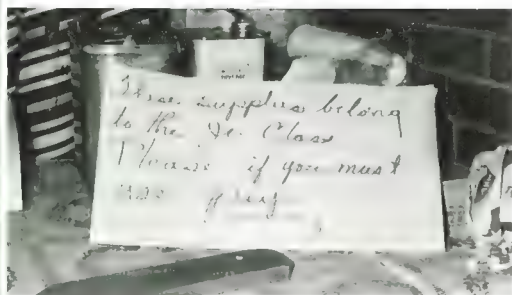 These supplies belong
to the Sr. Class
Please if you must
use